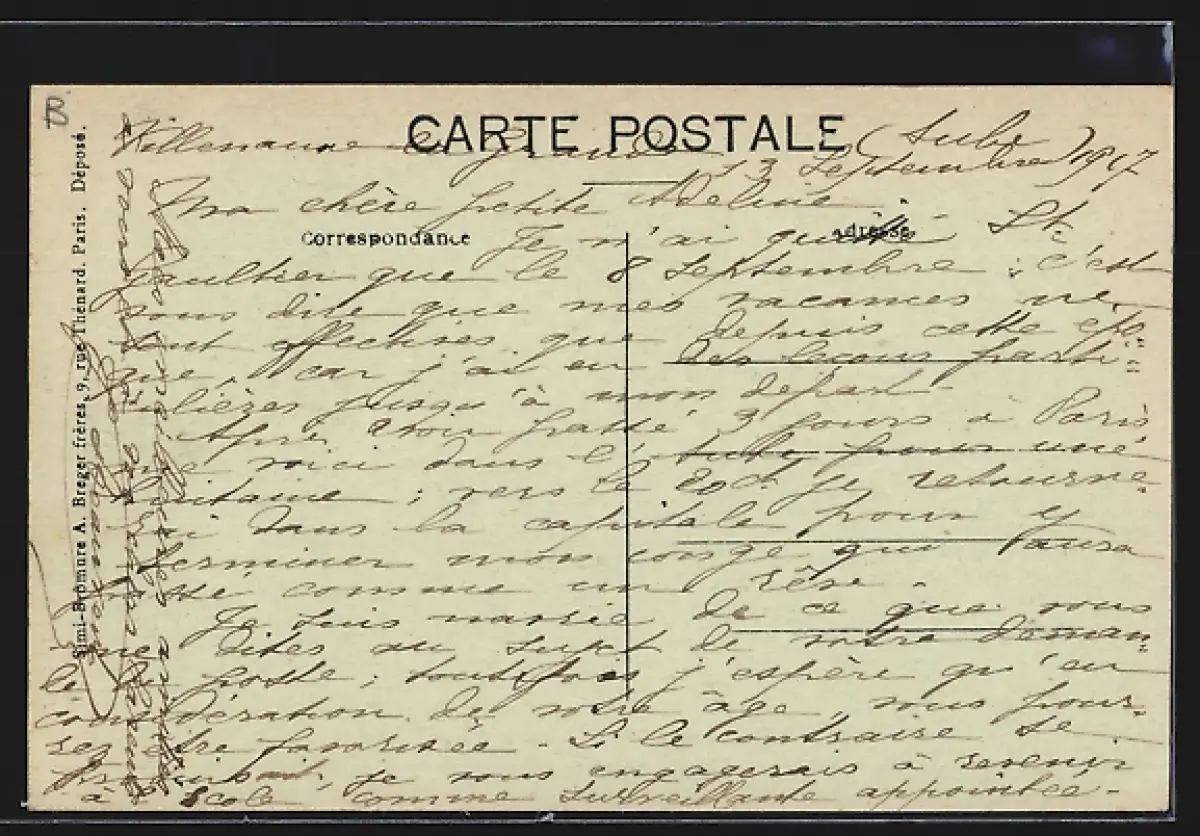 CARTE POSTALE
Villenauxe la Grande (Aube)
13 Septembre 1917
Ma chère petite Adeline.
Correspondance
adresse
Je n'ai quitté St-
Gaultier que le 8 septembre ; c'est
vous dire que mes vacances ne
sont effectives que depuis cette épo-
que, car j'ai eu des leçons parti-
culières jusqu'à mon départ
Après avoir passé 3 jours à Paris
me voici dans l'Aube pour une
huitaine ; vers le 20 ct je retourne-
rai dans la capitale pour y
terminer mon congé qui aura
passé comme un rêve.
Je suis navrée de ce que vous
me dites au sujet de votre deman-
de de poste ; toutefois j'espère qu'en
considération de votre âge, vous pour-
rez être favorisée. Si le contraire se
produisait, je vous engagerais à revenir
à école comme surveillante appointée.
Simi-Bromure A. Breger frères, 9, rue Thénard. Paris. Déposé.
B